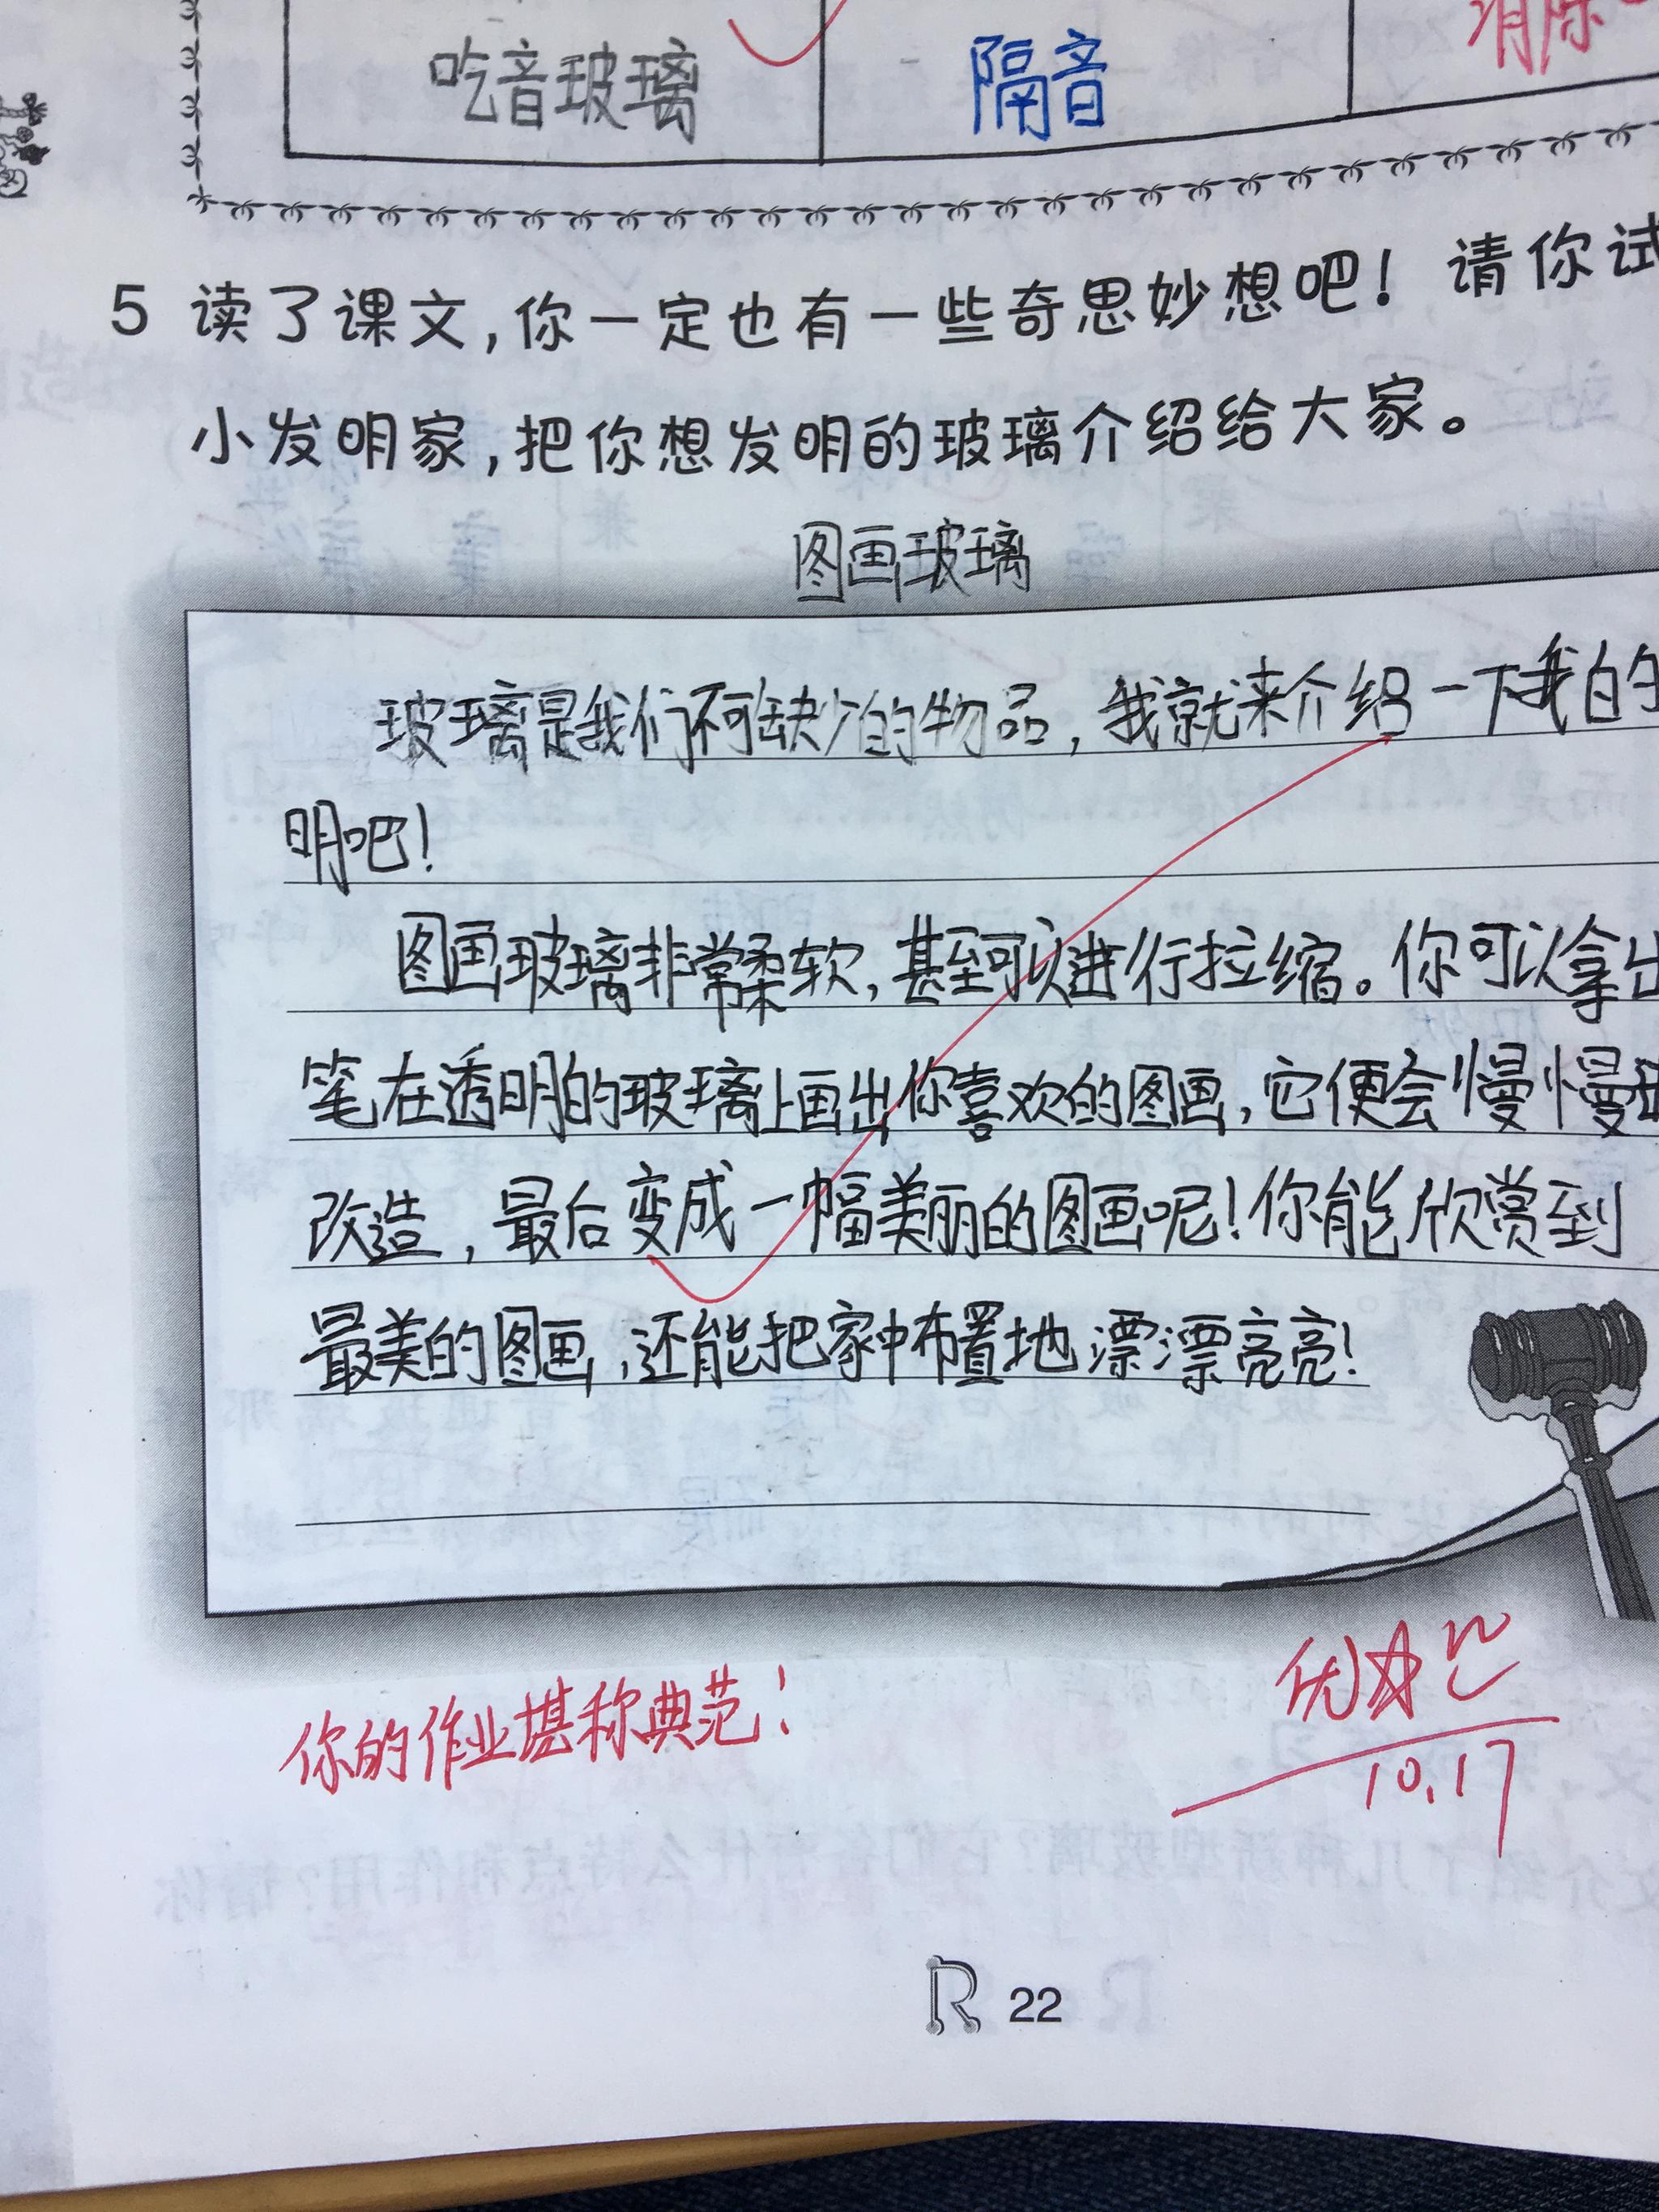 吃音玻璃 隔音 消除
5 读了课文,你一定也有一些奇思妙想吧!请你试
小发明家,把你想发明的玻璃介绍给大家。
图画玻璃
玻璃是我们不可缺少的物品,我就来介绍一下我的
明吧!
图画玻璃非常柔软,甚至可以进行拉缩。你可以拿出
笔在透明的玻璃上画出你喜欢的图画,它便会慢慢
改造,最后变成一幅美丽的图画呢!你能欣赏到
最美的图画,还能把家中布置地漂漂亮亮!
你的作业堪称典范!
优
10.17
R 22